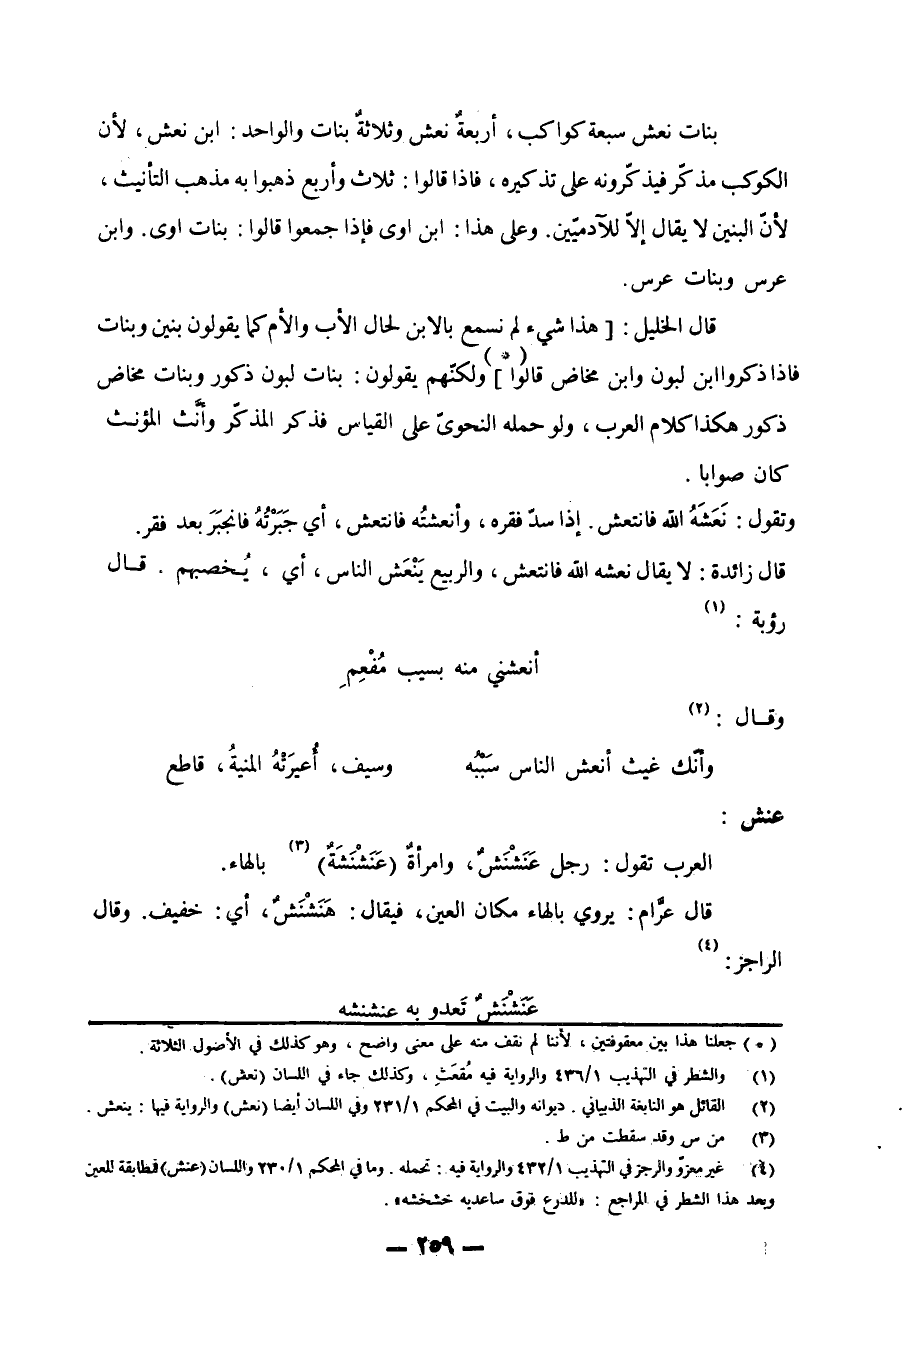 بنات نعش سبعة كواكب ، أربعةٌ نعش وثلاثةٌ بنات والواحد : ابن نعش ، لأن
الكوكب مذكّر فيذكّرونه على تذكيره ، فاذا قالوا : ثلاث وأربع ذهبوا به مذهب التأنيث ،
لأنّ البنين لا يقال إلاّ للآدميّين. وعلى هذا : ابن اوى فإذا جمعوا قالوا : بنات اوى. وابن
عرس وبنات عرس.
قال الخليل : [ هذا شيء لم نسمع بالابن لحال الأب والأم كما يقولون بنين وبنات
فاذا ذكروا ابن لبون وابن مخاض قالوا ] (*) ولكنّهم يقولون : بنات لبون ذكور وبنات مخاض
ذكور هكذا كلام العرب ، ولو حمله النحويّ على القياس فذكر المذكّر وأنَّث المؤنث
كان صوابا .
وتقول : نَعَشَهُ الله فانتعش. إذا سدّ فقره ، وأنعشتُه فانتعش ، أي جَبَرْتُهُ فانجبَرَ بعد فقر.
قال زائدة : لا يقال نعشه الله فانتعش ، والربيع يَنْعَش الناس ، أي ، يُـخصبهم . قـال
رؤبة : (١)
أنعشني منه بسيب مُفْعِمِ
وقـال : (٢)
وأنّك غيث أنعش الناس سَيْبُه وسيف، أُعيرَتْهُ المنيةُ، قاطع
عنش :
العرب تقول : رجل عَنَشْنَشٌ، وامرأةٌ (عَنَشْنَشَةٌ) (٣) بالهاء.
قال عرَّام : يروي بالهاء مكان العين، فيقال : هَنَشْنَشٌ، أي : خفيف. وقال
الراجز : (٤)
عَنَشْنَشٌ تَعدو به عنشنشه
( * ) جعلنا هذا بين معقوفتين ، لأننا لم نقف منه على معنى واضح ، وهو كذلك في الأصول الثلاثة .
(١) والشطر في التهذيب ٤٣٦/١ والرواية فيه مُقعَثِ ، وكذلك جاء في اللسان (نعش) .
(٢) القائل هو النابغة الذبياني . ديوانه والبيت في المحكم ٢٣١/١ وفي اللسان أيضا (نعش) والرواية فيها : ينعش .
(٣) من س وقد سقطت من ط .
(٤) غير معزوّ والرجز في التهذيب ٤٣٢/١ والرواية فيه : تحمله . وما في المحكم ٢٣٠/١ واللسان (عنش) فمطابقة للعين
وبعد هذا الشطر في المراجع : «للدرع فوق ساعديه خشخشه» .
— ٢٥٩ —